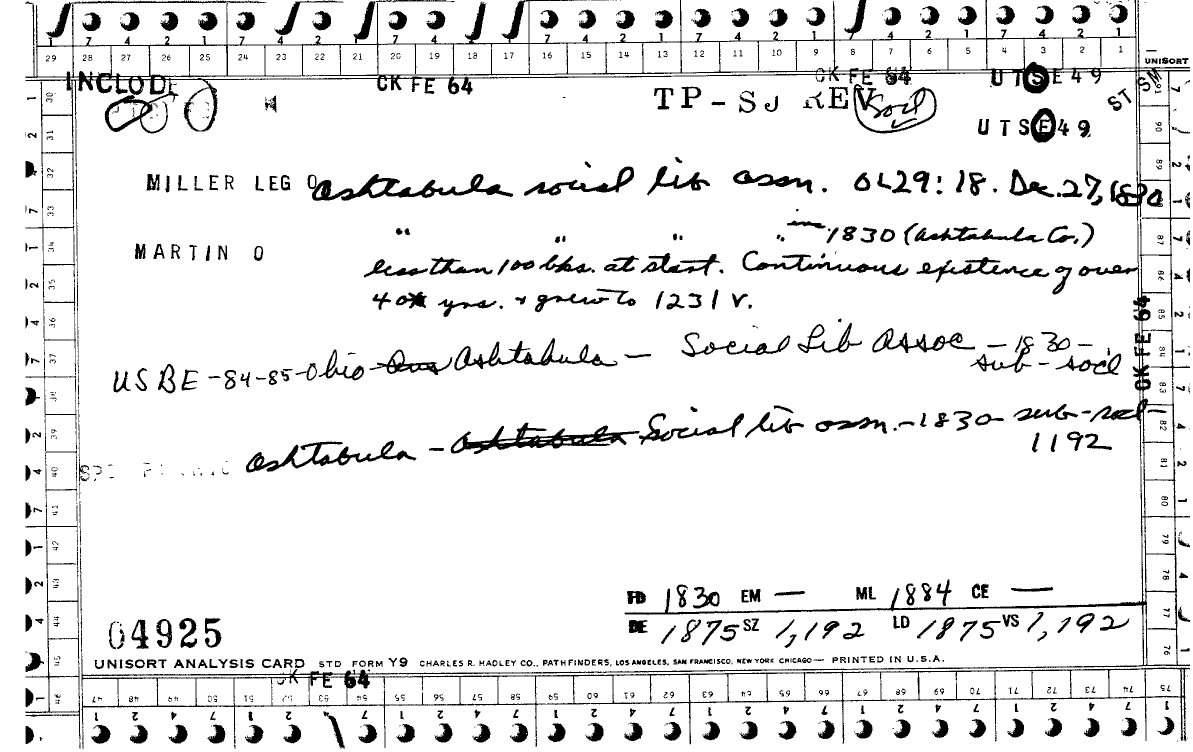 1 7 4 2 1 7 4 2 1 7 4 2 1 7 4 2 1 7 4 2 1 7 4 2 1
29 28 27 26 25 24 23 22 21 20 19 18 17 16 15 14 13 12 11 10 9 8 7 6 5 4 3 2 1 UNISORT
INCLODE CK FE 64 CK FE 64 UTSE49
TP-SJ REV Socl ST SM
UTSE49
MILLER LEG O Ashtabula social lib assn. OL29:18. Dec. 27, 1830
MARTIN O " " " " in 1830 (Ashtabula Co.)
less than 100 bks. at start. Continuous existence of over
40 yrs. & grew to 1231 v.
USBE-84-85-Ohio- Ashtabula — Social Lib Assoc — 1830 —
sub-socl
CK FE 64
Ashtabula - Ashtabula Social lib assn.-1830- sub-socl-
1192
FD 1830 EM — ML 1884 CE —
DE 1875 SZ 1,192 LD 1875 VS 1,192
04925
UNISORT ANALYSIS CARD STD FORM Y9 CHARLES R. HADLEY CO., PATHFINDERS, LOS ANGELES, SAN FRANCISCO, NEW YORK CHICAGO — PRINTED IN U.S.A.
CK FE 64
47 48 49 50 51 52 53 54 55 56 57 58 59 60 61 62 63 64 65 66 67 68 69 70 71 72 73 74 75